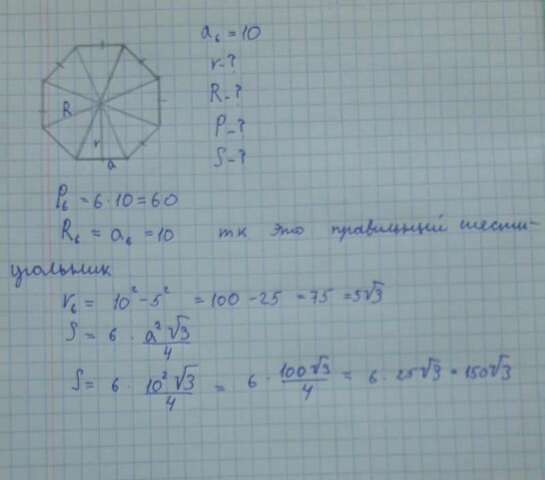 a₆ = 10
r-?
R-?
P-?
S-?
R
r
a
P₆ = 6 · 10 = 60
R₆ = a₆ = 10 тк это правильный шести-
угольник
r₆ = 10² - 5² = 100 - 25 = 75 = 5√3
S = 6 · a²√3/4
S = 6 · 10²√3/4 = 6 · 100√3/4 = 6 · 25√3 = 150√3